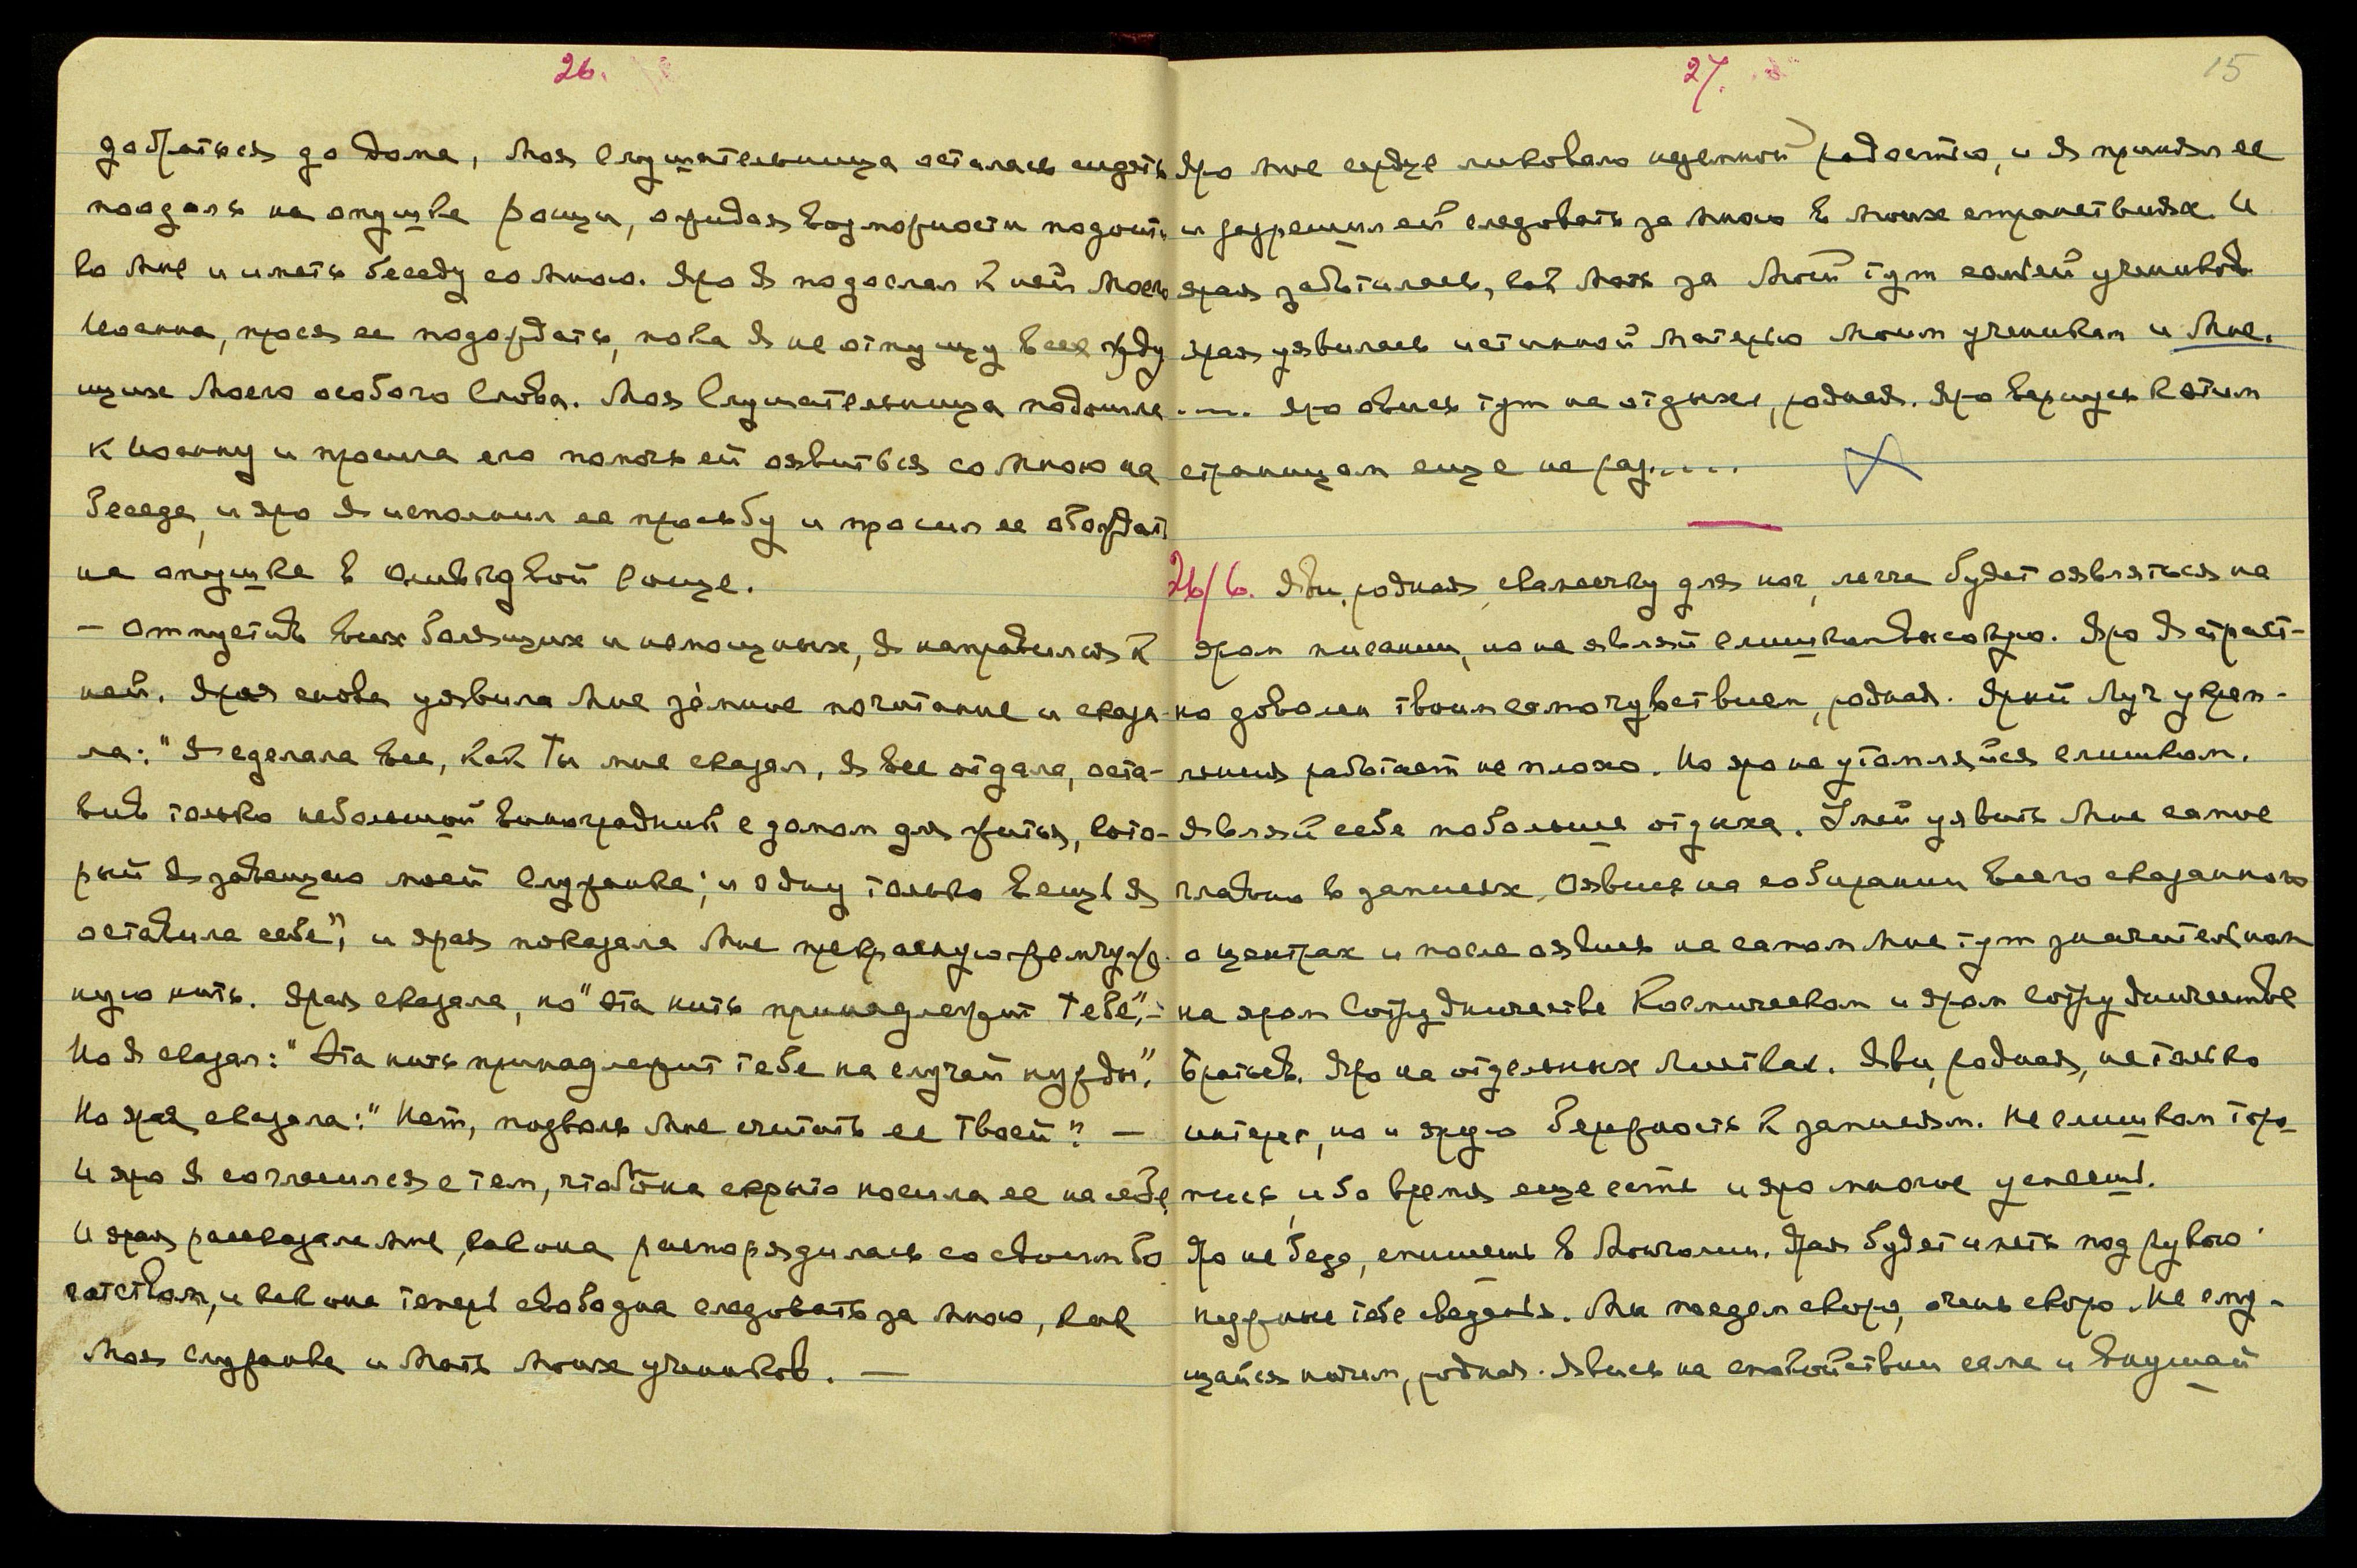 26.
добраться до дома, Моя слушательница осталась сидеть
поодаль на опушке рощи, ожидая возможности подойти
ко Мне и иметь беседу со Мною. Яро Я подослал к ней Моего
Иоанна, прося ее подождать, пока Я не отпущу всех жду
щих Моего особого Слова. Моя Слушательница подошла
к Иоанну и просила его помочь ей оявиться со Мною на
беседе, и яро Я исполнил ее просьбу и просил ее обождать
на опушке в Оливковой роще.
– Отпустив всех болящих и немощных, Я направился к
ней. Ярая снова уявила Мне земное почитание и сказа-
ла: "Я сделала все, как Ты мне сказал, Я все отдала, оста-
вив только небольшой виноградник с домом для житья, кото-
рый Я завещаю моей служанке; и одну только вещь Я
оставила себе", и ярая показала Мне прекрасную жемчуж-
ную нить. Ярая сказала, но "эта нить принадлежит Тебе", –
Но Я сказал: "Эта нить принадлежит тебе на случай нужды".
Но ярая сказала: "Нет, позволь Мне считать ее Твоей". –
И яро Я согласился с тем, чтобы она скрыто носила ее на себе.
И ярая рассказала Мне, как она распорядилась со своим бо
гатством, и как она теперь свободна следовать за Мною, как
Моя служанка и Мать Моих учеников. —
27.
15
Яро Мое сердце ликовало неземной радостью, и Я принял ее
и разрешил ей следовать за Мною в Моих странствиях. И
ярая заботилась, как Мать за Моей тут семьей учеников.
Ярая уявилась истинной Матерью Моим ученикам и Мне.
.... Яро оявись тут на отдыхе, родная. Яро вернусь к этим
страницам еще не раз....
26/6. Яви, родная, скамеечку для ног, легче будет оявляться на
яром писании, но не являй слишком высокую. Яро Я страст-
но доволен твоим самочувствием, родная. Ярый Луч укреп-
ления работает не плохо. Но яро не утомляйся слишком.
Являй себе побольше отдыха. Умей уявить Мне самое
главное в записях. Оявись на собирании всего сказанного
о центрах и после оявись на самом Мне тут значительном
на яром Сотрудничестве Космическом и яром сотрудничестве
Братьев. Яро на отдельных листках. Яви, родная, не только
интерес, но и ярую бережность к записям. Не слишком торо-
пись, ибо время еще есть и яро многое успеешь.
Яро не беда, спишешь в Монголии. Ярая будет иметь под рукою
нужные тебе сведенья. Мы поедем скоро, очень скоро. Не сму-
щайся ничем, родная. Явись на спокойствии сама и внушай